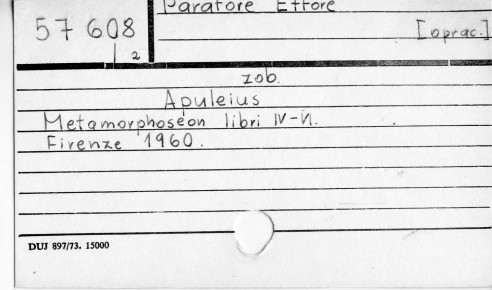 Paratore Ettore
57 608
[oprac.]
2
zob.
Apuleius
Metamorphoseon libri IV-VI.
Firenze 1960.
DUJ 897/73. 15000